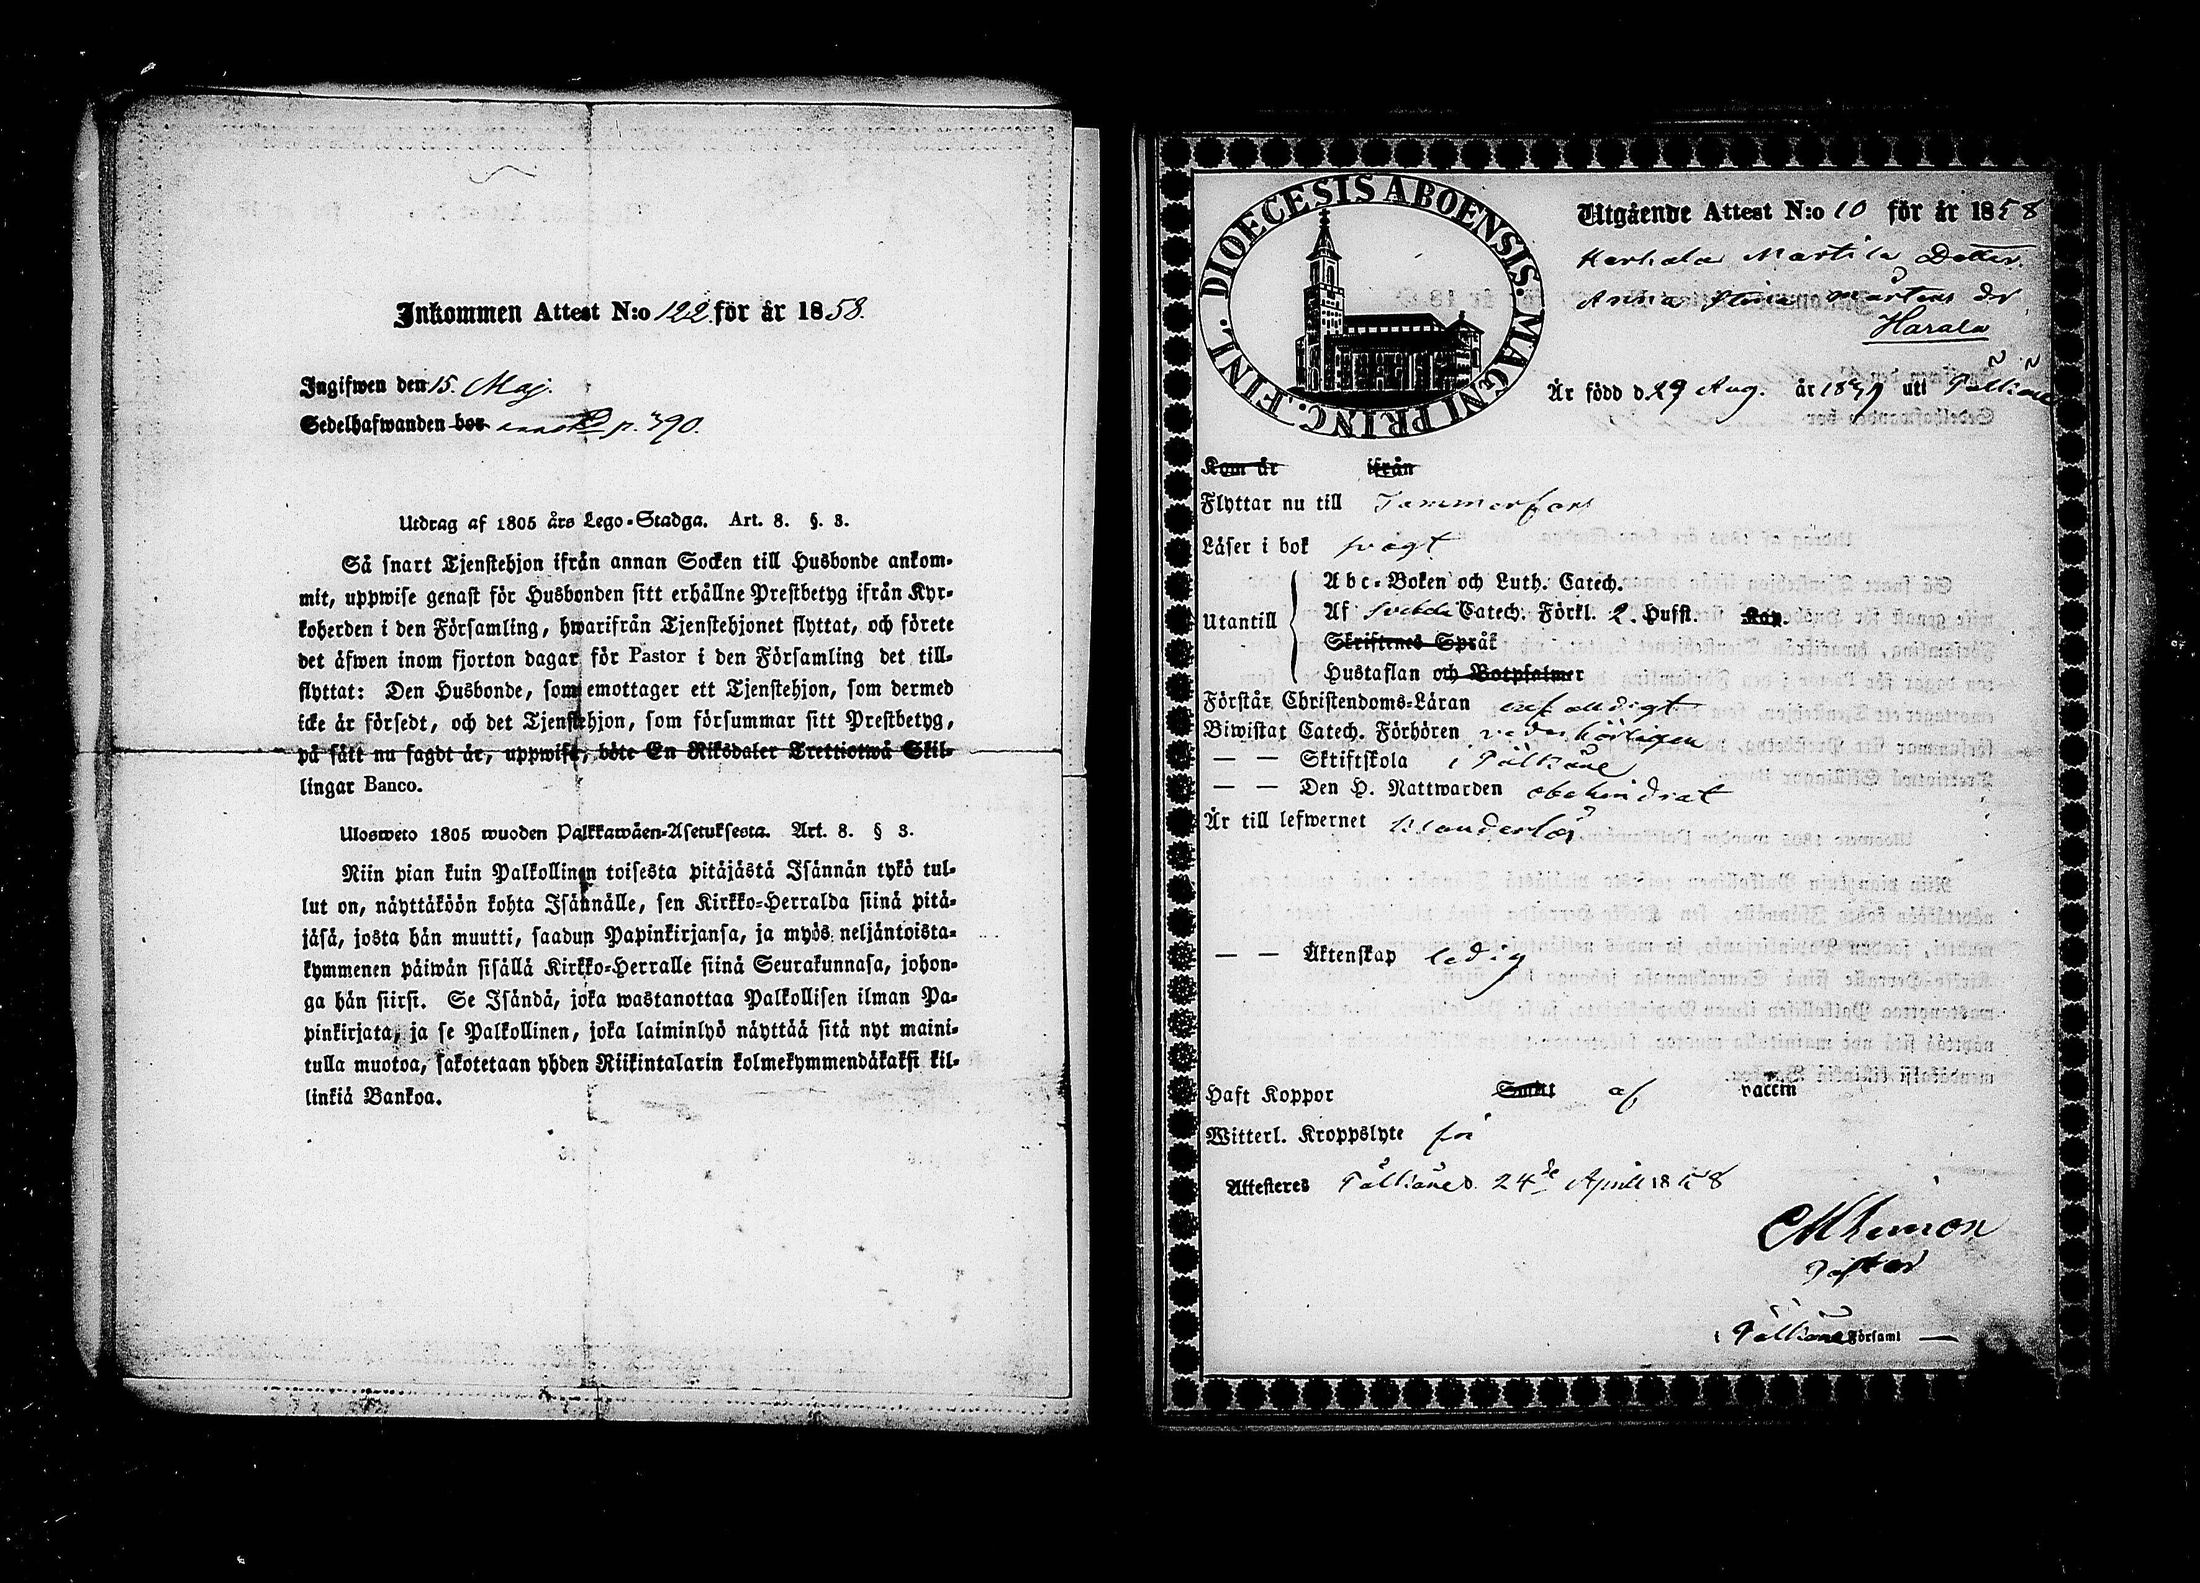 Inkommen Attest N:o 122. för år 1858.
Ingifwen den 15. Maj.
Sedelhafwanden bor p. 390.
Utdrag af 1805 års Lego-Stadga. Art. 8. §. 3.
Så snart Tjenstehjon ifrån annan Socken till Husbonde ankom-
mit, uppwise genast för Husbonden sitt erhållne Prestbetyg ifrån Kyr-
koherden i den Församling, hwarifrån Tjenstehjonet flyttat, och förete
det äfwen inom fjorton dagar för Pastor i den Församling det till-
flyttat: Den Husbonde, som emottager ett Tjenstehjon, som dermed
icke är försedt, och det Tjenstehjon, som försummar sitt Prestbetyg,
på sätt nu sagdt är, uppwisa, böte En Riksdaler Trettiotwå Skil-
lingar Banco.
Ulosweto 1805 wuoden Palkkawäen-Asetuksesta. Art. 8. § 3.
Niin pian kuin Palkollinen toisesta pitäjästä Isännän tykö tul-
lut on, näyttäköön kohta Isännälle, sen Kirkko-Herralda siinä pitä-
jäsä, josta hän muutti, saadun Papinkirjansa, ja myös neljäntoista-
kymmenen päiwän sisällä Kirkko-Herralle siinä Seurakunnasa, johon-
ga hän siirsi. Se Isändä, joka wastanottaa Palkollisen ilman Pa-
pinkirjata, ja se Palkollinen, joka laiminlyö näyttää sitä nyt maini-
tulla muotoa, sakotetaan yhden Riikintalarin kolmekymmendäkaksi kil-
linkiä Bankoa.
DIOECESIS ABOENSIS. MAGNI PRINC. FINL.
Utgående Attest N:o 10 för år 1858
Martila Dotter
Anna Stina Mårtens dr
Harala
Är född d. 29 Aug. år 1839 uti Pälkäne
Kom år ifrån
Flyttar nu till Tammerfors
Läser i bok svagt
Utantill
Abc-Boken och Luth. Catech.
Af Svebelii Catech. Förkl. 2. Hufst. Kap.
Skriftenes Språk
Hustaflan och Botpsalmer
Förstår Christendoms-Läran enfaldigt
Biwistat Catech. Förhören vederbörligen
— — Sktiftskola i Pälkäne
— — Den H. Nattwarden obehindrat
Är till lefwernet klanderlös
— — Äktenskap ledig
Haft Koppor Smitt af vaccin
Witterl. Kroppslyte fri
Attesteres Pälkäne d. 24de April 1858
Pastor
i Pälkäne Församl —